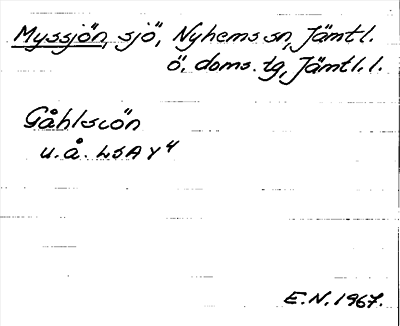 Myssjön, sjö, Nyhems sn, Jämtl.
ö. doms. tg, Jämtl. l.
Gåhlsiön
u.å. LSA Y 4
E.N. 1967.